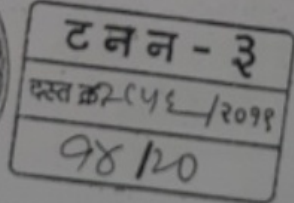 ट न न - ३
दस्त क्र २८५६/२०१९
१४/२०